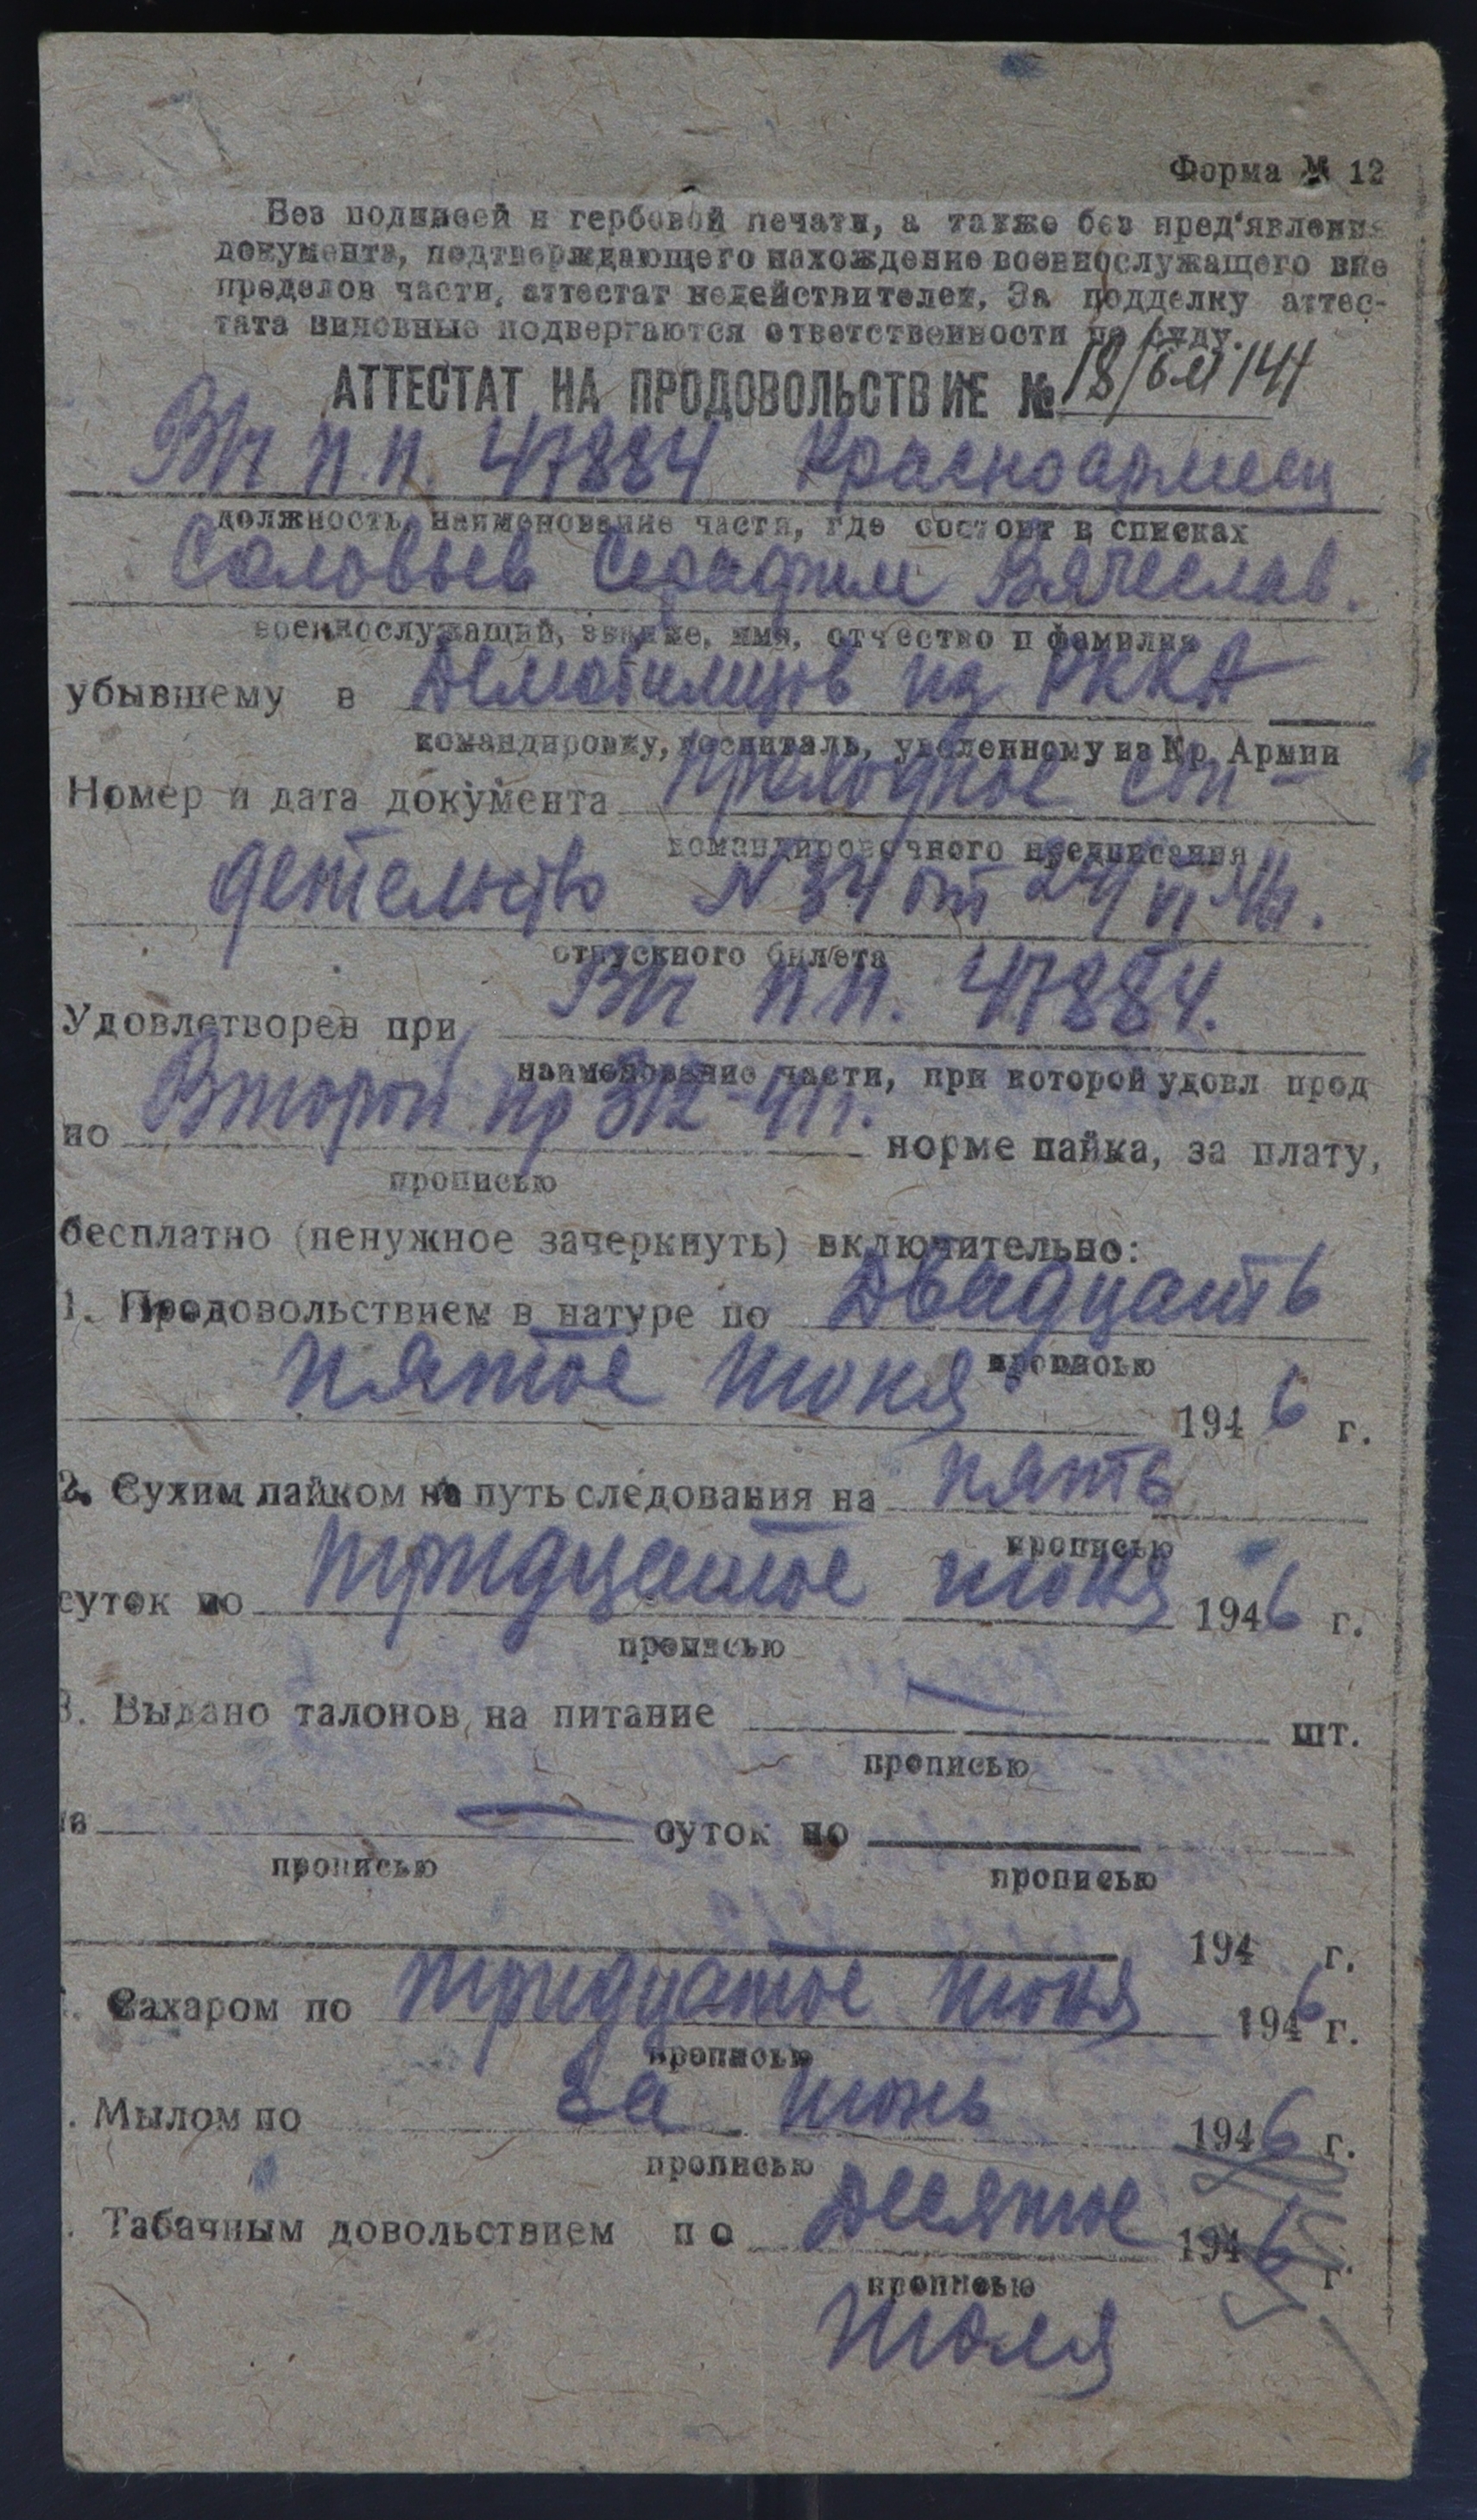 Форма № 12
Без подписей и гербовой печати, а также без пред'явления
документа, подтверждающего нахождение военнослужащего вне
пределов части, аттестат недействителен. За подделку аттес-
тата виновные подвергаются ответственности по суду.
АТТЕСТАТ НА ПРОДОВОЛЬСТВИЕ №
В/ч п.п. 47884 Красноармеец
должность, наименование части, где состоит в списках
Соловьев Серафим Вячеслав.
военнослужащий, звание, имя, отчество и фамилия
убывшему в Демобилизов из РККА
командировку, госпиталь, уволенному из Кр. Армии
Номер и дата документа
командировочного предписания
детельство N 34 от 24/VI 46г.
отпускного билета
Удовлетворен при В/ч п.п. 47884.
наименование части, при которой удовл прод
по Второй пр 312-41г. норме пайка, за плату,
прописью
бесплатно (ненужное зачеркнуть) включительно:
1. Продовольствием в натуре по Двадцать
прописью
пятое июня 1946 г.
2. Сухим пайком на путь следования на пять
прописью
суток по тридцатое июня 1946 г.
прописью
3. Выдано талонов на питание — шт.
прописью
на — суток по
прописью прописью
194 г.
. Сахаром по тридцатое июня 1946 г.
прописью
. Мылом по за июнь 1946 г.
прописью
. Табачным довольствием по Десятое 1946 г.
прописью
июля